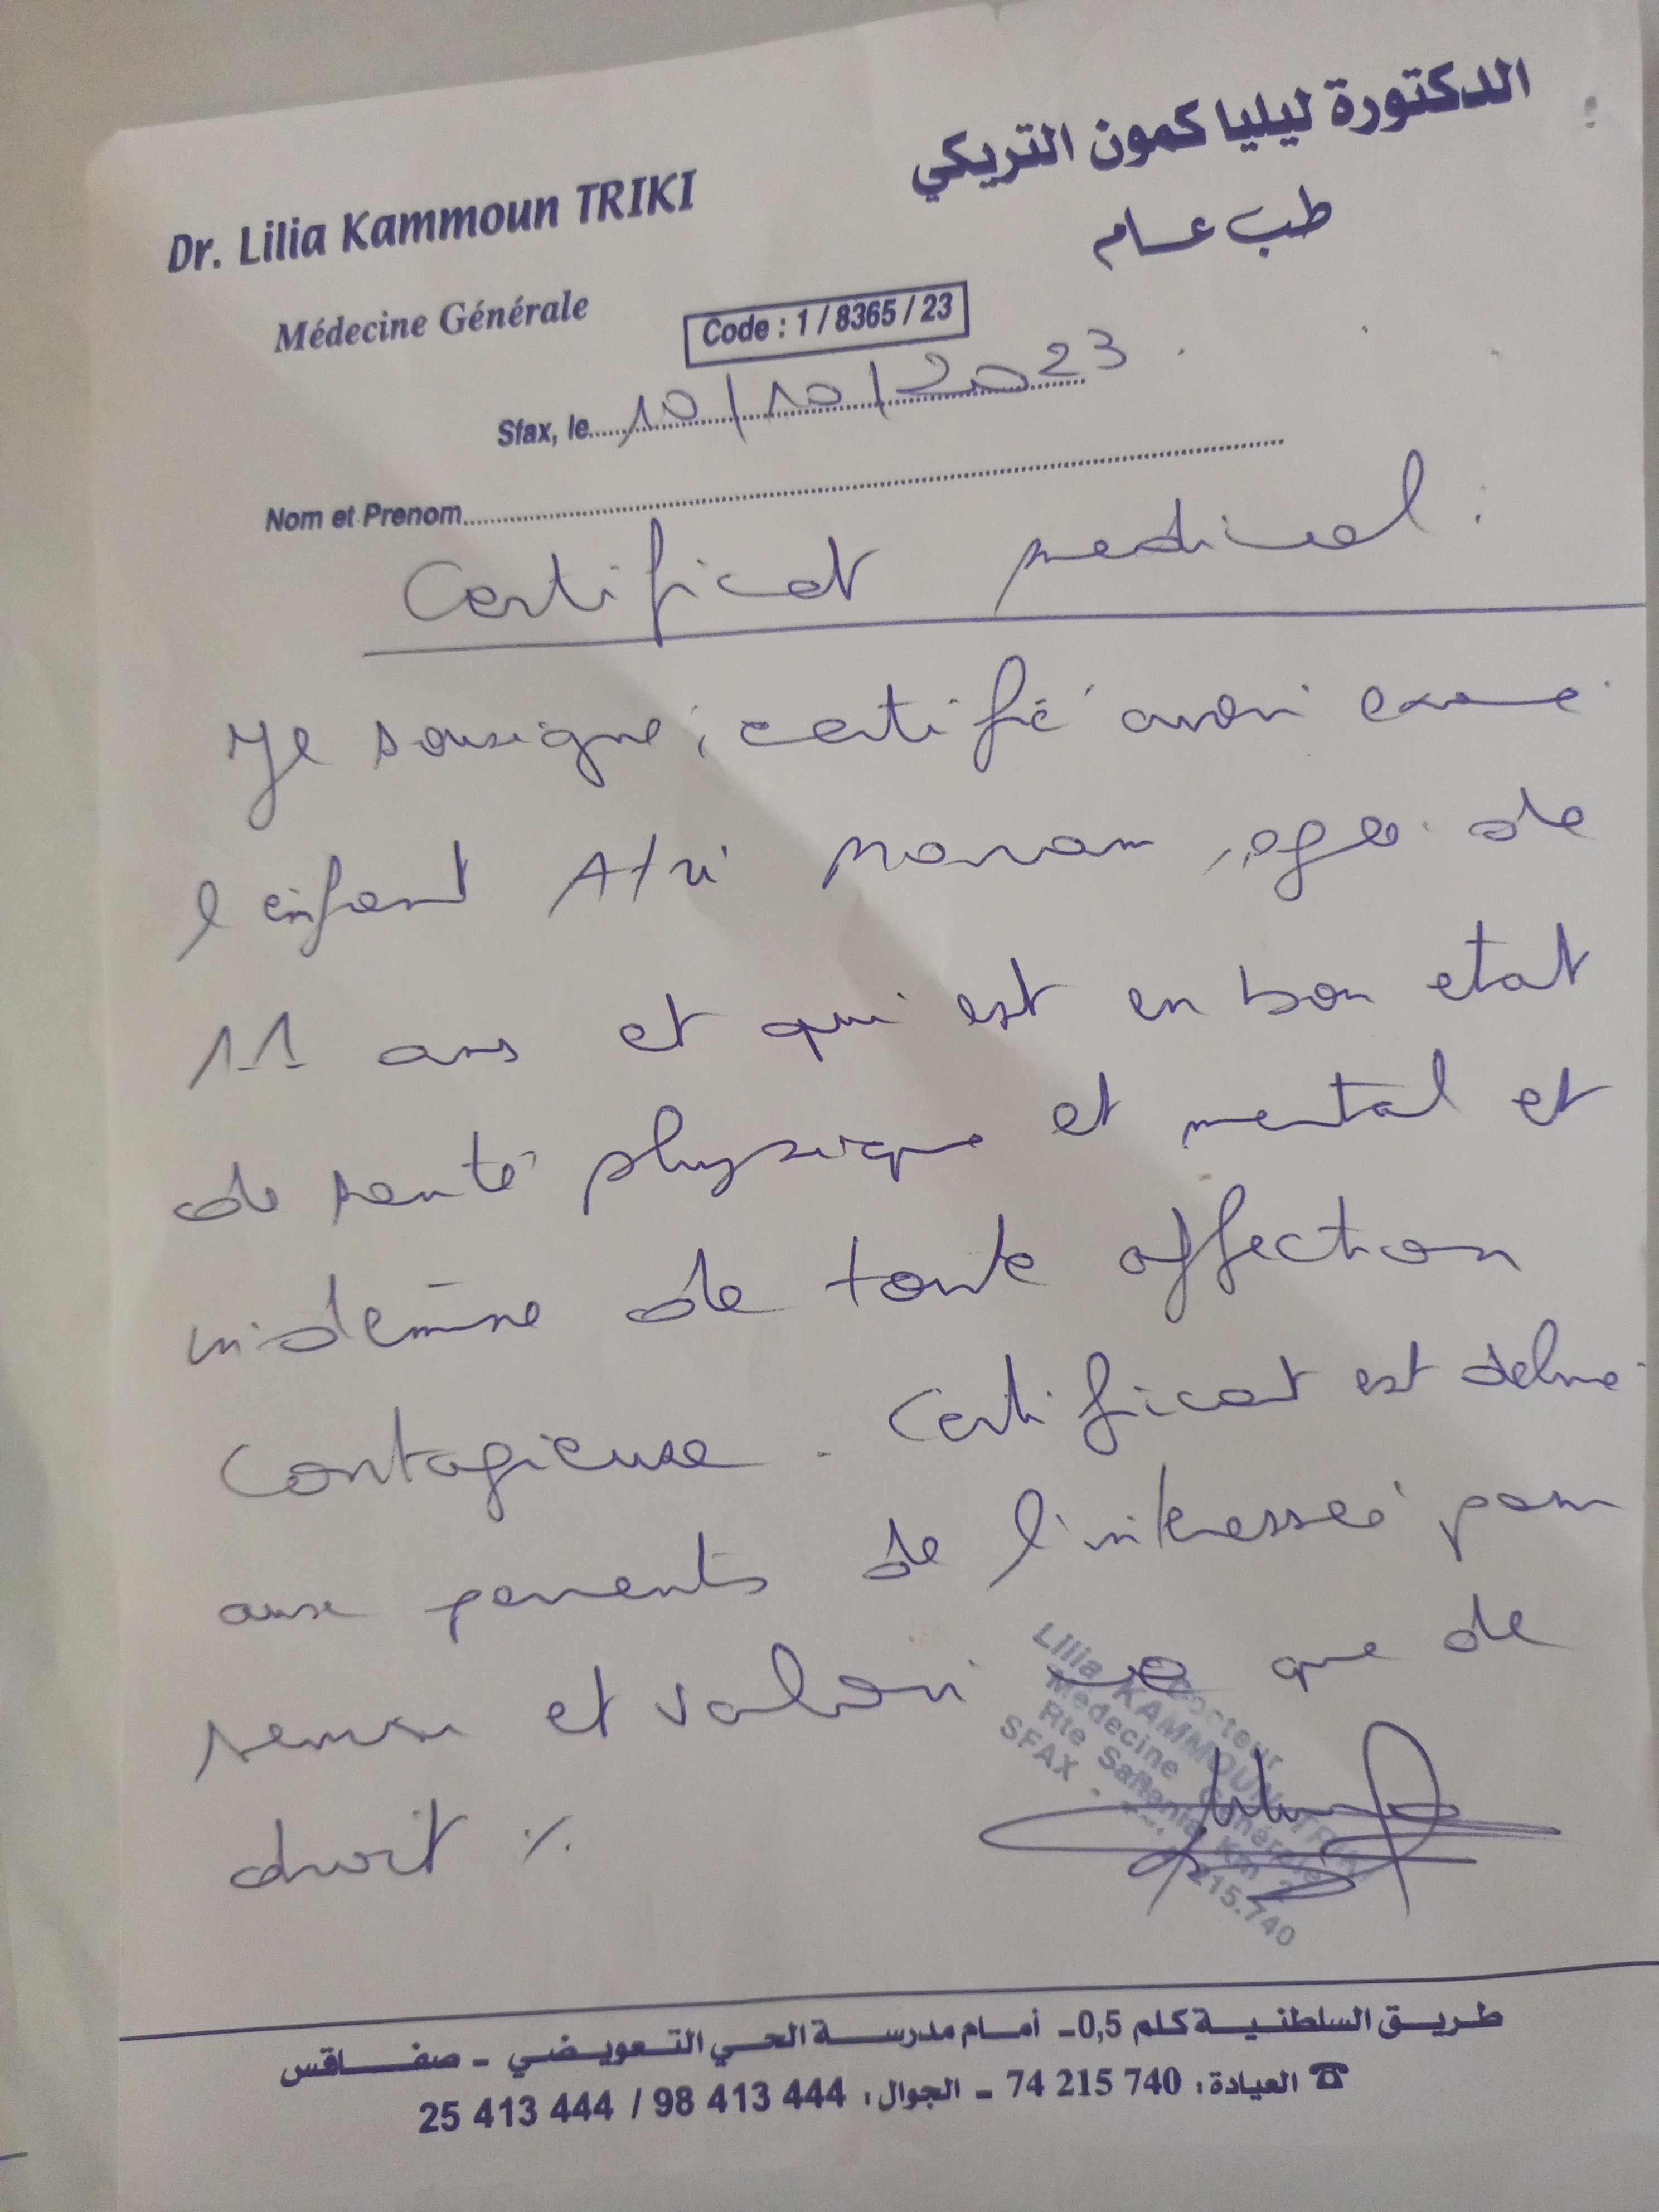 الدكتورة ليليا كمون التريكي
طب عام
Dr. Lilia Kammoun TRIKI
Médecine Générale
Code : 1 / 8365 / 23
Sfax, le 10/10/2023
Nom et Prenom
Certificat medical :
Je sousigné, certifié avoir
l'enfant Atri agé de
11 ans et qui est en bon etat
de santé physique et mental et
indemne de toute affection
contagieuse. Certificat est delivré
aux parents de l'interessé pour
servir et valoir ce que de
droit ./.
Docteur
Lilia KAMMOUN TRIKI
Médecine Générale
Rte Saltania Km
SFAX - 215.740
طريق السلطنية كلم 0,5 - أمام مدرسة الحي التعويضي - صفاقس
☎ العيادة : 74 215 740 - الجوال : 98 413 444 / 25 413 444